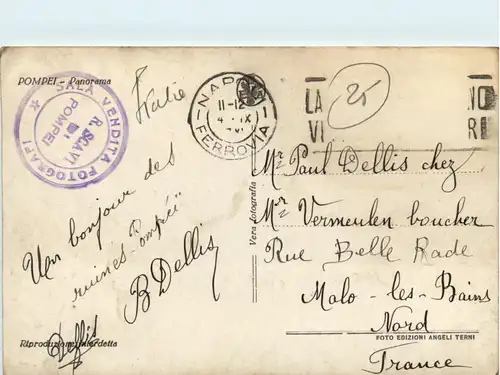 POMPEI - Panorama
Italie
SALA VENDITA FOTOGRAFI
R. SCAVI
DI
POMPEI
NAPOLI
11-12
4 IX
FERROVIA
25
LA
VI
NO
RI
Un bonjour des
ruines Pompéi
B Dellis
Dellis
Mr Paul Dellis chez
Mr Vermeulen boucher
Rue Belle Rade
Malo-les-Bains
Nord
France
Vera fotografia
Riproduzione interdetta
FOTO EDIZIONI ANGELI TERNI